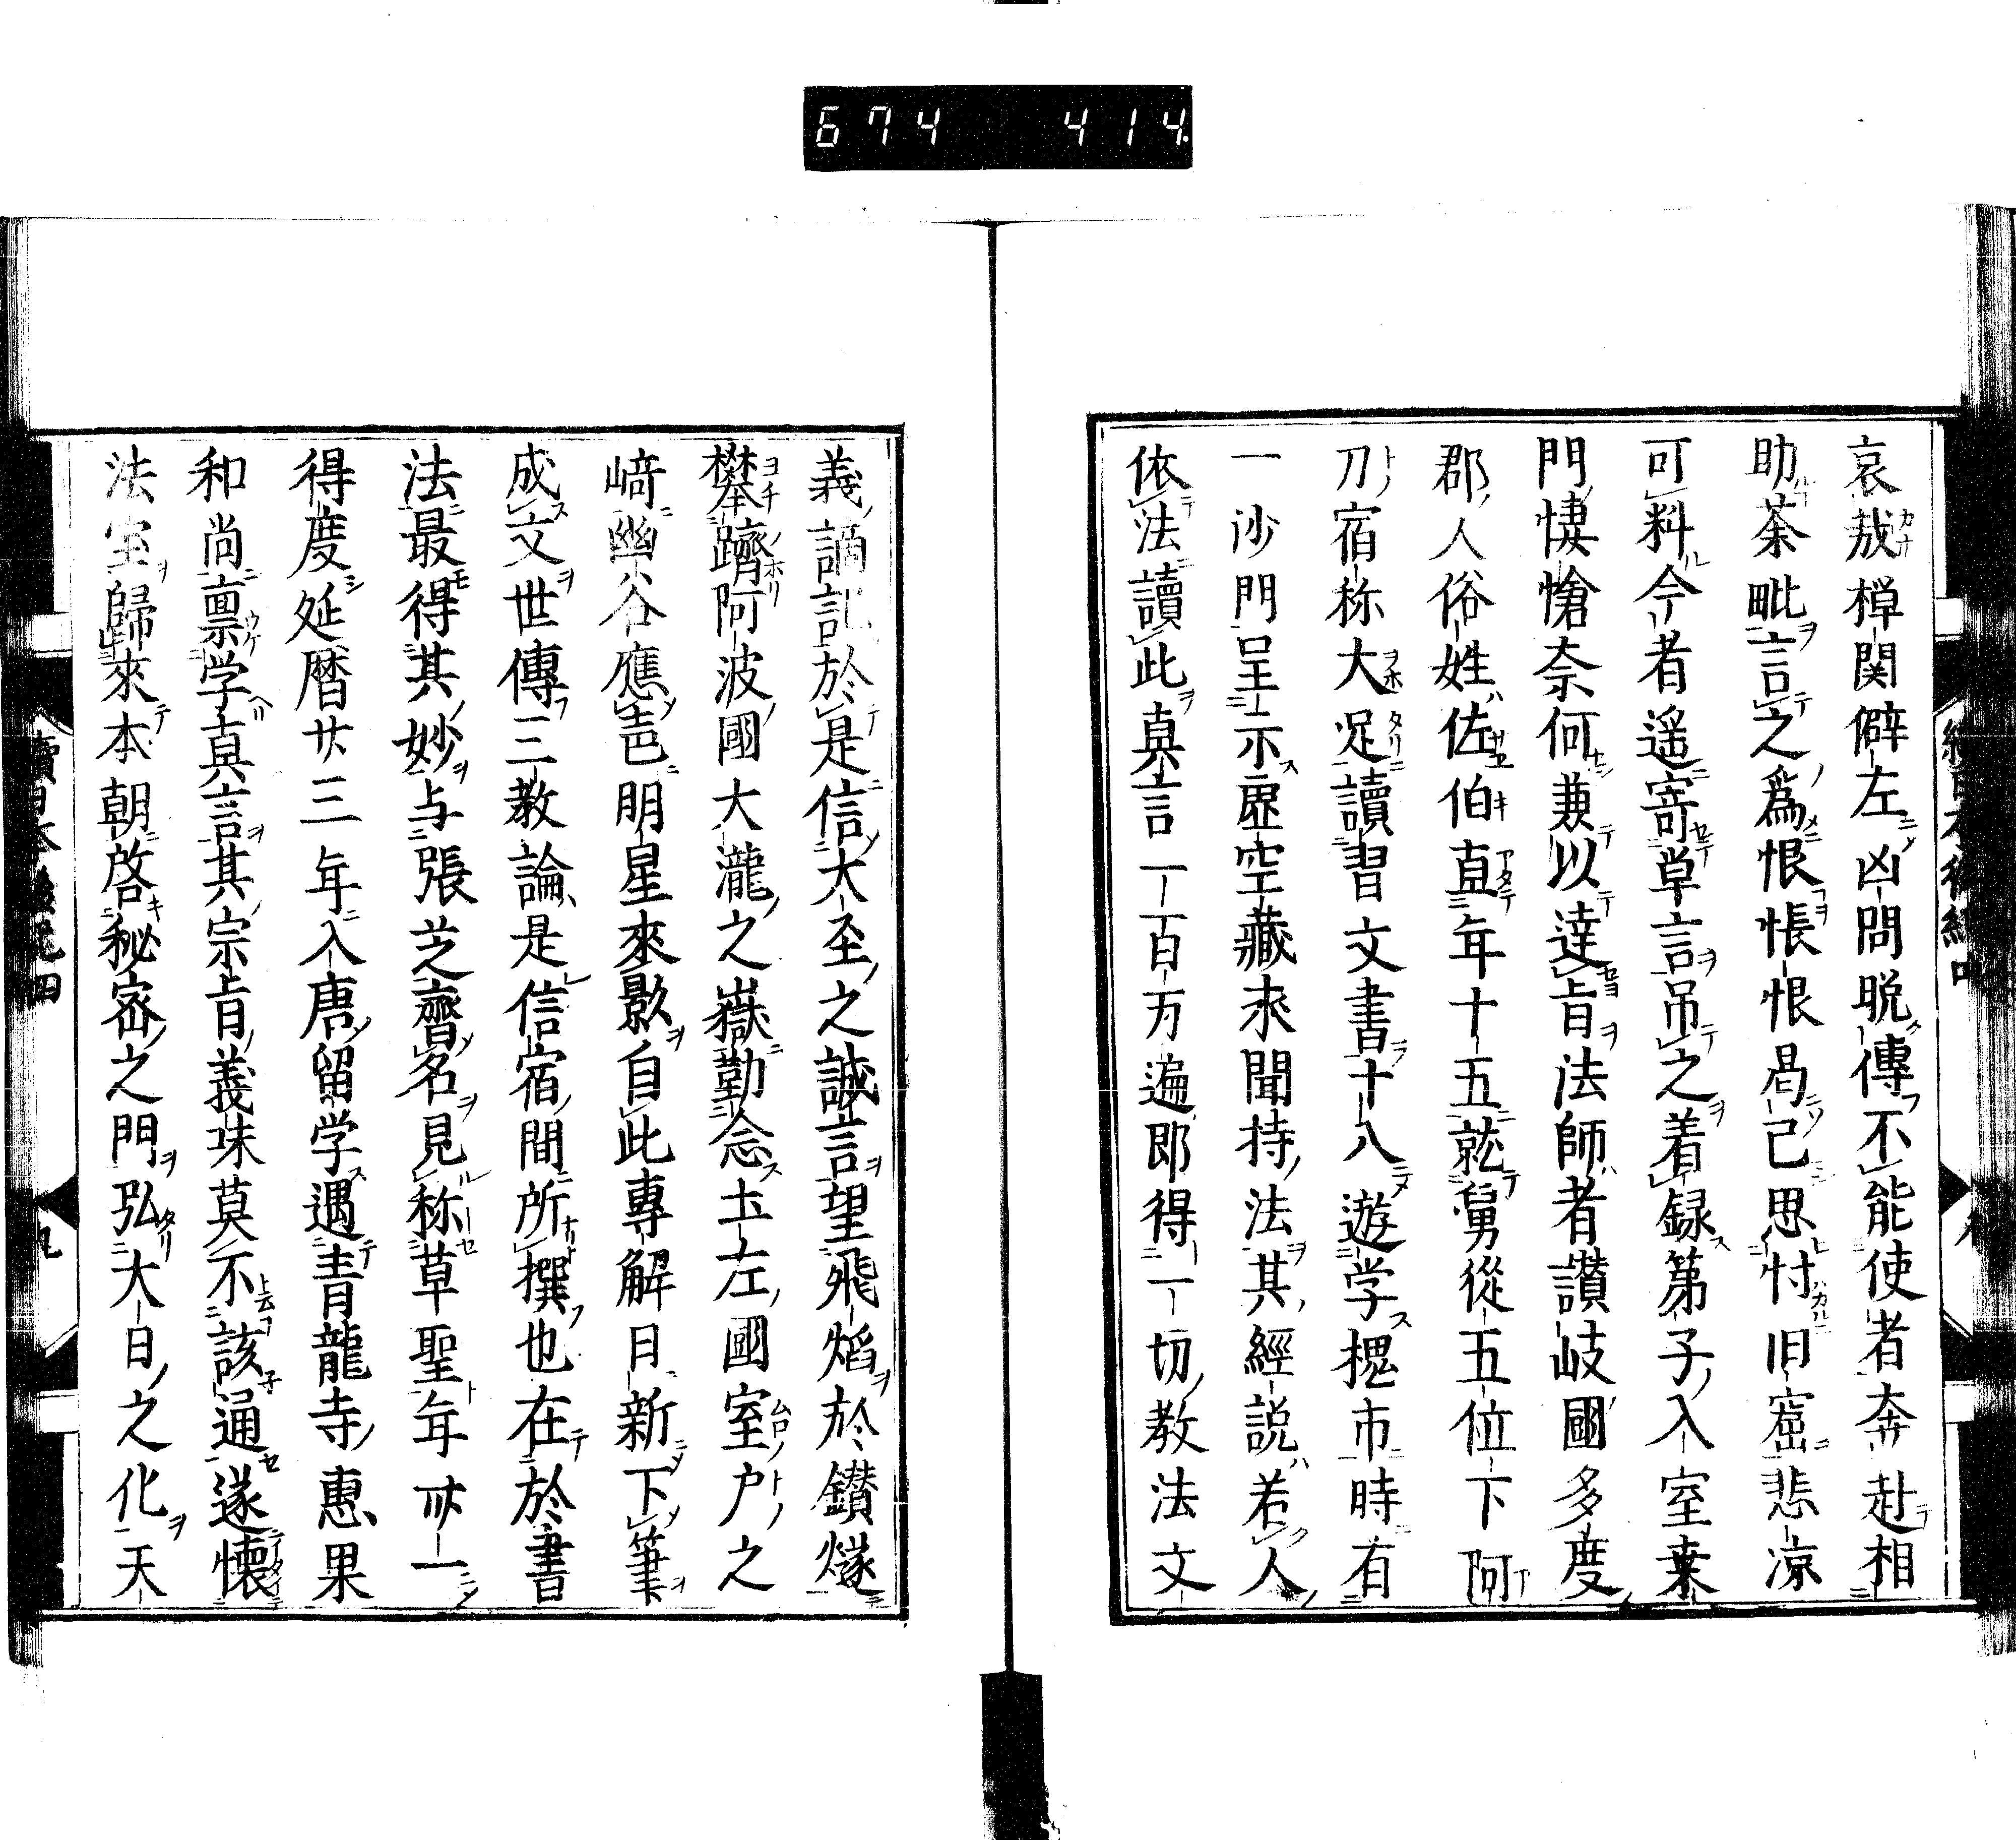 674 414
哀哉禪関僻左凶問晩傳不能使者奔赴相
助荼毗言之爲恨悵恨曷已思忖旧窟悲凉
可料今者遥寄草言吊之着録第子入室桒
門悽愴奈何兼以達旨法師者讃岐國多度
郡人俗姓佐伯直年十五就舅從五位下阿
刀宿祢大足讀習文書十八遊学槐市時有
一沙門呈示虚空藏求聞持法其經説若人
依法讀此真言一百万遍即得一切教法文
義諳記於是信大圣之誠言望飛焰於鑚燧
攀躋阿波國大瀧之嶽勤念土左國室户之
﨑幽谷應㖈明星來影自此專解日新下筆
成文世傳三教論是信宿間所撰也在於書
法最得其妙与張芝齊名見称草聖年卅一
得度延暦廿三年入唐留学遇青龍寺惠果
和尚禀学真言其宗旨義味莫不該通遂懷
法宝歸來本朝啓秘密之門弘大日之化天
續日本後紀四
九